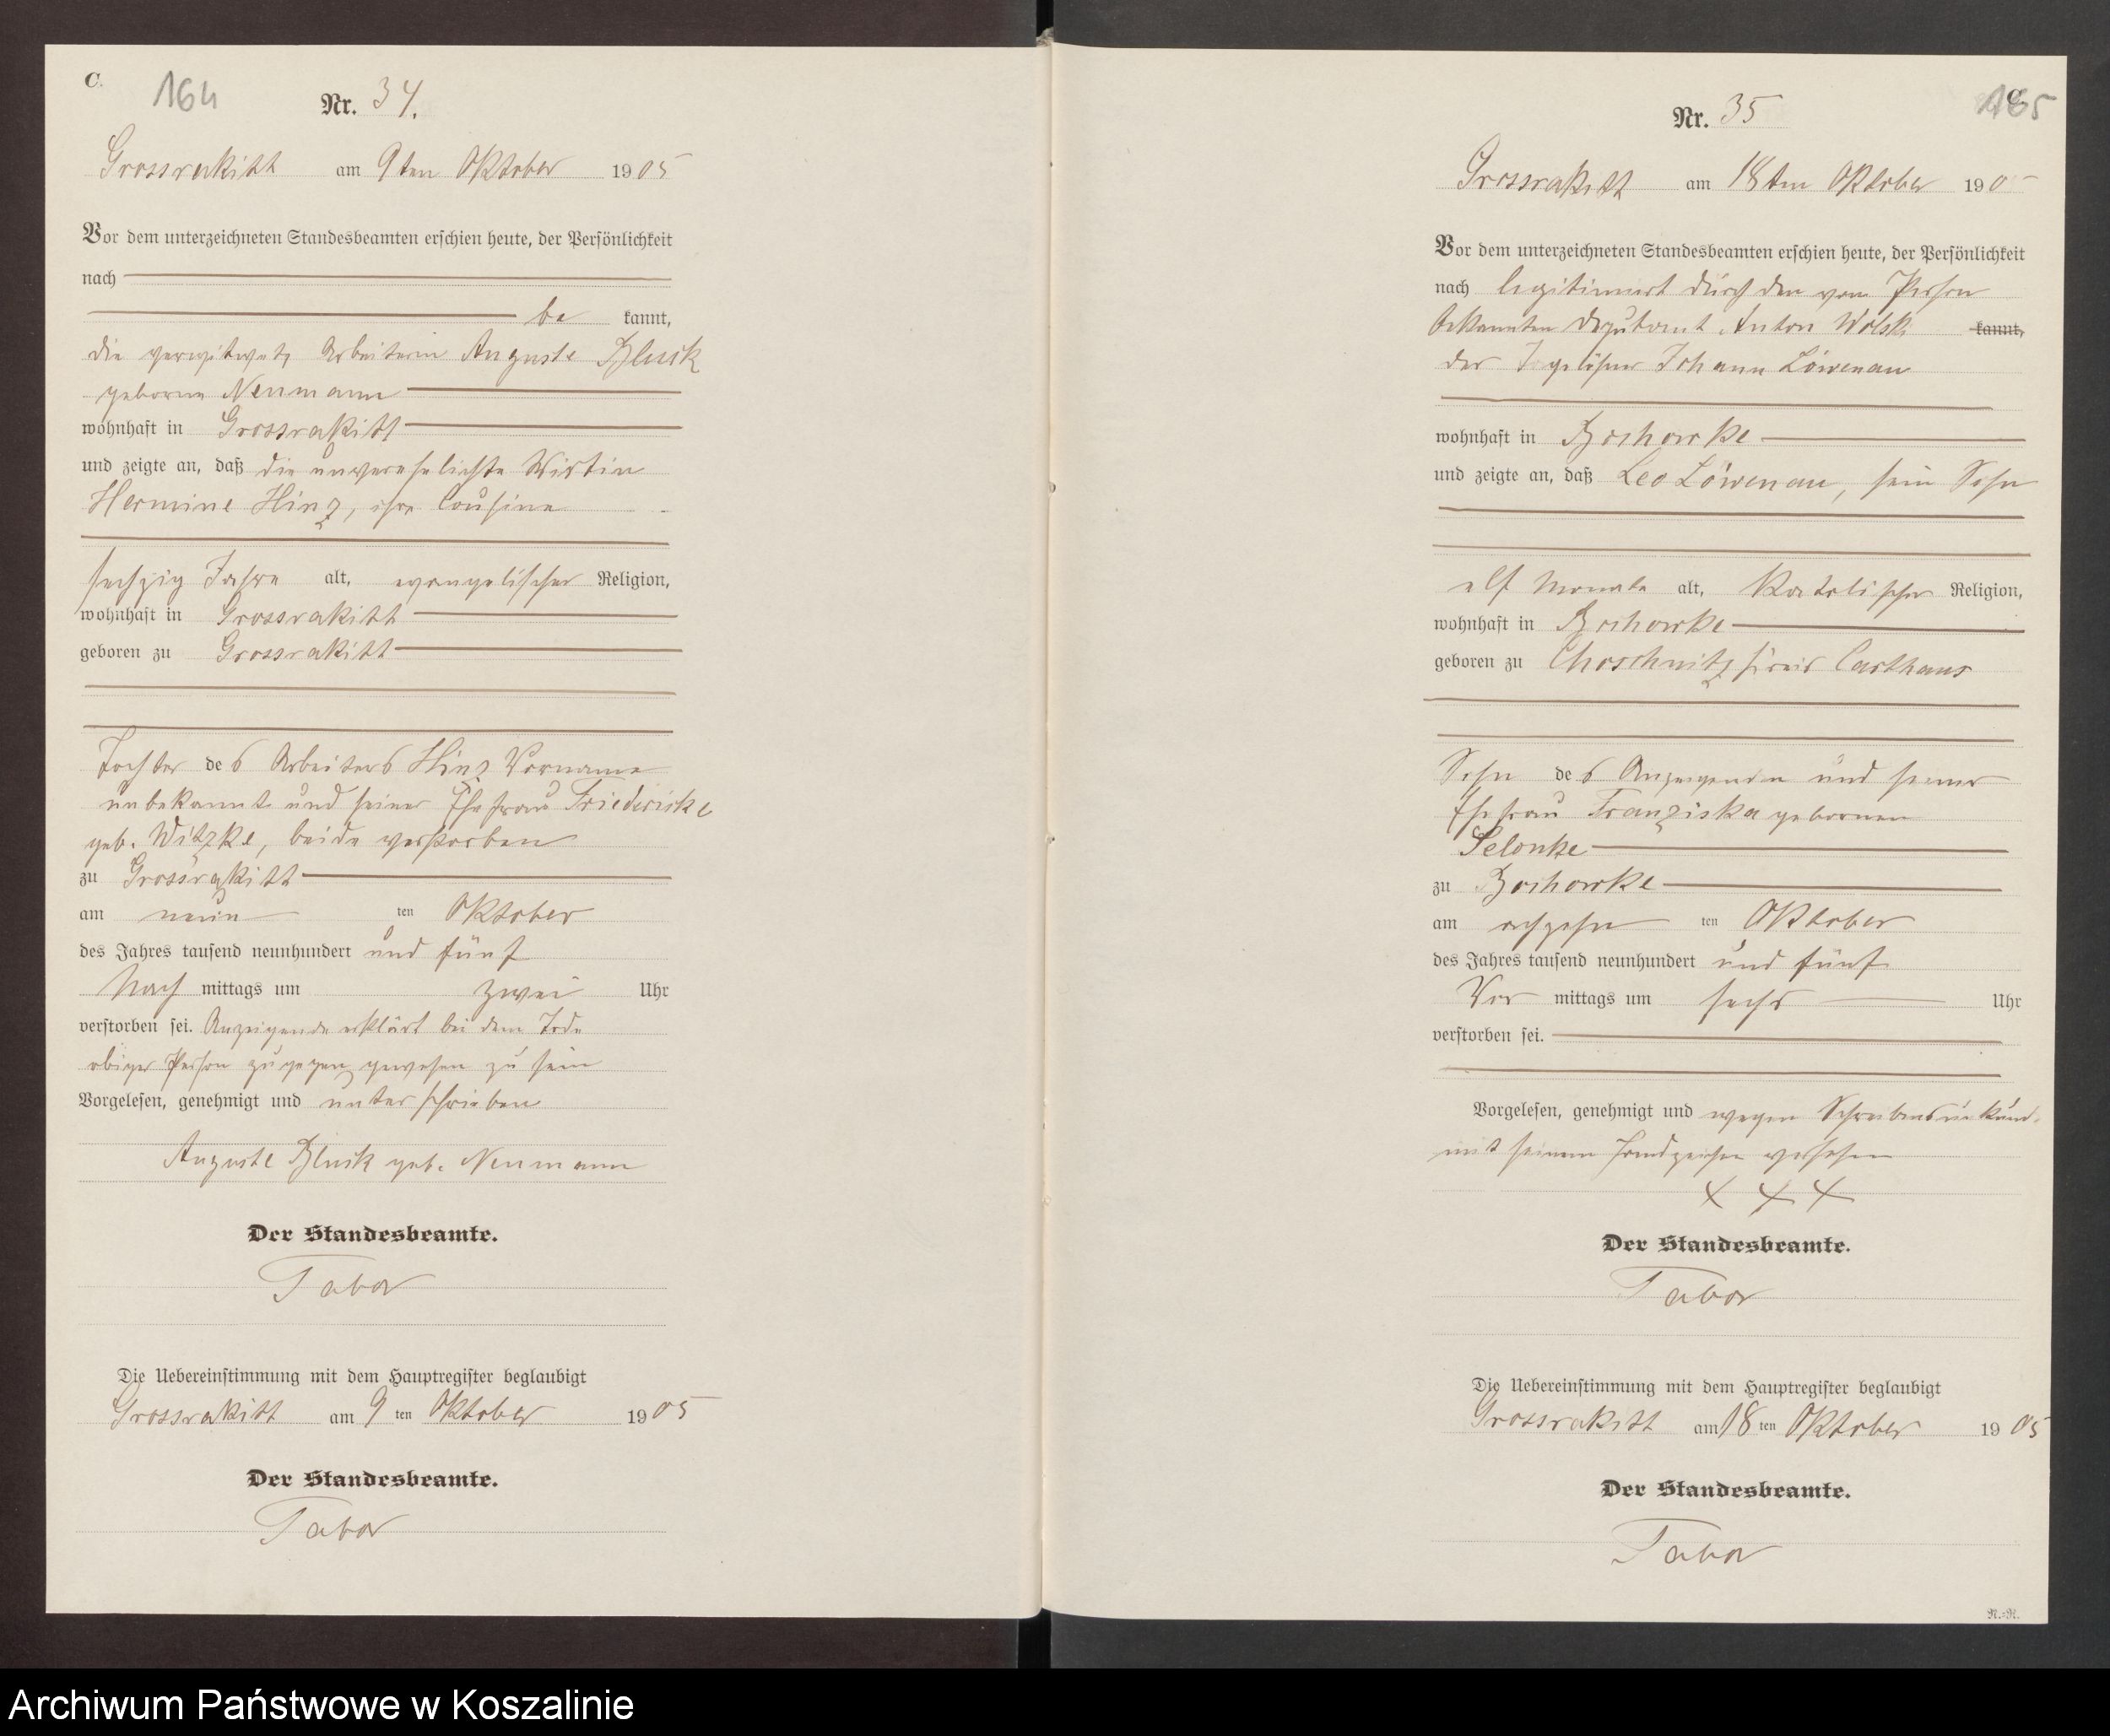 C.
164
Nr. 34.
Grossrakitt am 9ten Oktober 1905
Vor dem unterzeichneten Standesbeamten erschien heute, der Persönlichkeit
nach
be kannt,
die verwitwete Arbeiterin Auguste
geborne Neumann
wohnhaft in Grossrakitt
und zeigte an, daß die unverehelichte Wirtin
Hermine Hinz, ihre Cousine
sechzig Jahre alt, evangelischer Religion,
wohnhaft in Grossrakitt
geboren zu Grossrakitt
Tochter des Arbeiters Hinz Vorname
unbekannt und seiner Ehefrau Friedericke
geb. Witzke, beide verstorben
zu Grossrakitt
am neun ten Oktober
des Jahres tausend neunhundert und fünf
Nach mittags um zwei Uhr
verstorben sei. Anzeigende erklärt bei dem Tode
obiger Person zugegen gewesen zu sein
Vorgelesen, genehmigt und unterschrieben
Auguste geb. Neumann
Der Standesbeamte.
Tabor
Die Uebereinstimmung mit dem Hauptregister beglaubigt
Grossrakitt am 9 ten Oktober 1905
Der Standesbeamte.
Tabor
165
Nr. 35
Grossrakitt am 18ten Oktober 190
Vor dem unterzeichneten Standesbeamten erschien heute, der Persönlichkeit
nach legitimiert durch den von Person
bekannten Deputant Anton Wolski kannt,
der Tagelöhner Johann Löwenau
wohnhaft in Bochowke
und zeigte an, daß Leo Löwenau, sein Sohn
elf Monate alt, Katolischer Religion,
wohnhaft in Bochowke
geboren zu Choschnitz Kreis Carthaus
Sohn des Anzeigenden und seiner
Ehefrau Franziska gebornen
Selonke
zu Bochowke
am achzehn ten Oktober
des Jahres tausend neunhundert und fünf
Vor mittags um sechs Uhr
verstorben sei.
Vorgelesen, genehmigt und wegen Schreibensunkund.
mit seinem Handzeichen versehen
+ + +
Der Standesbeamte.
Tabor
Die Uebereinstimmung mit dem Hauptregister beglaubigt
Grossrakitt am 18 ten Oktober 1905
Der Standesbeamte.
Tabor
N.=R.
Archiwum Państwowe w Koszalinie